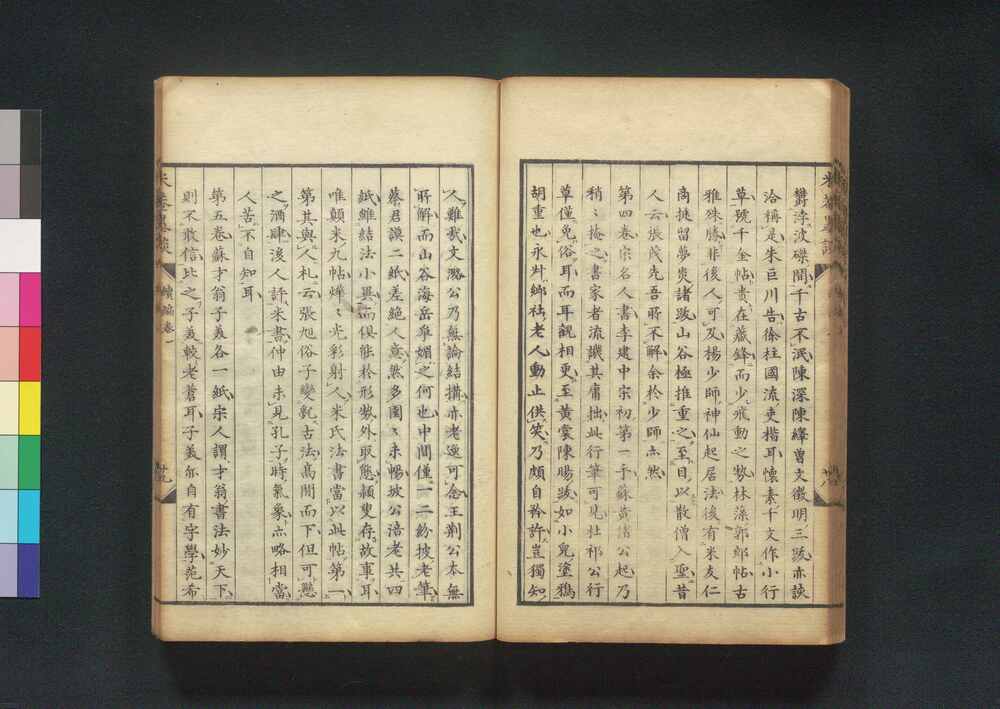 欝浮波磔間千古不泯陳深陳繹曽文徴明三跋亦談
洽稱是朱巨川告徐柱國流吏楷耳懷素千文作小行
草號千金帖貴在藏鋒而少飛動之勢林藻郭郎帖古
雅殊勝非後人可及楊少師神仙起居法後有米友仁
商挺留夢炎諸跋山谷極推重之至目以散僧入聖昔
人云張茂先吾所不解余於少師亦然
第四卷宗名人書李建中宗初第一手蘇黄諸公起乃
稍〻掩之書家者流譏其庸拙此行筆可見杜祁公行
草僅免俗耳而耳觀相更至黄裳陳暘跋如小兒塗鴉
胡重也永州鄉社老人動止供笑乃頗自矜許豈獨知
人難哉文潞公乃無論結搆亦老逕可念王荆公本無
所解而山谷海岳皐媚之何也中間僅一二紛披老筆
蔡君謨二紙差絶人意然多圈〻未暢坡公涪老共四
紙雖結法小異而俱能於形勢外取態穎叟存故事耳
唯顛米九帖燁〻光彩射人米氏法書當以此帖第一
第其與人札云張旭俗子變亂古法高閒而下但可懸
之酒肆後人評米書仲由未見孔子時氣象亦略相當
人苦不自知耳
第五卷蘇才翁子美各一紙宗人謂才翁書法妙天下
則不敢信比之子美較老蒼耳子美亦自有字學范希
續編卷一